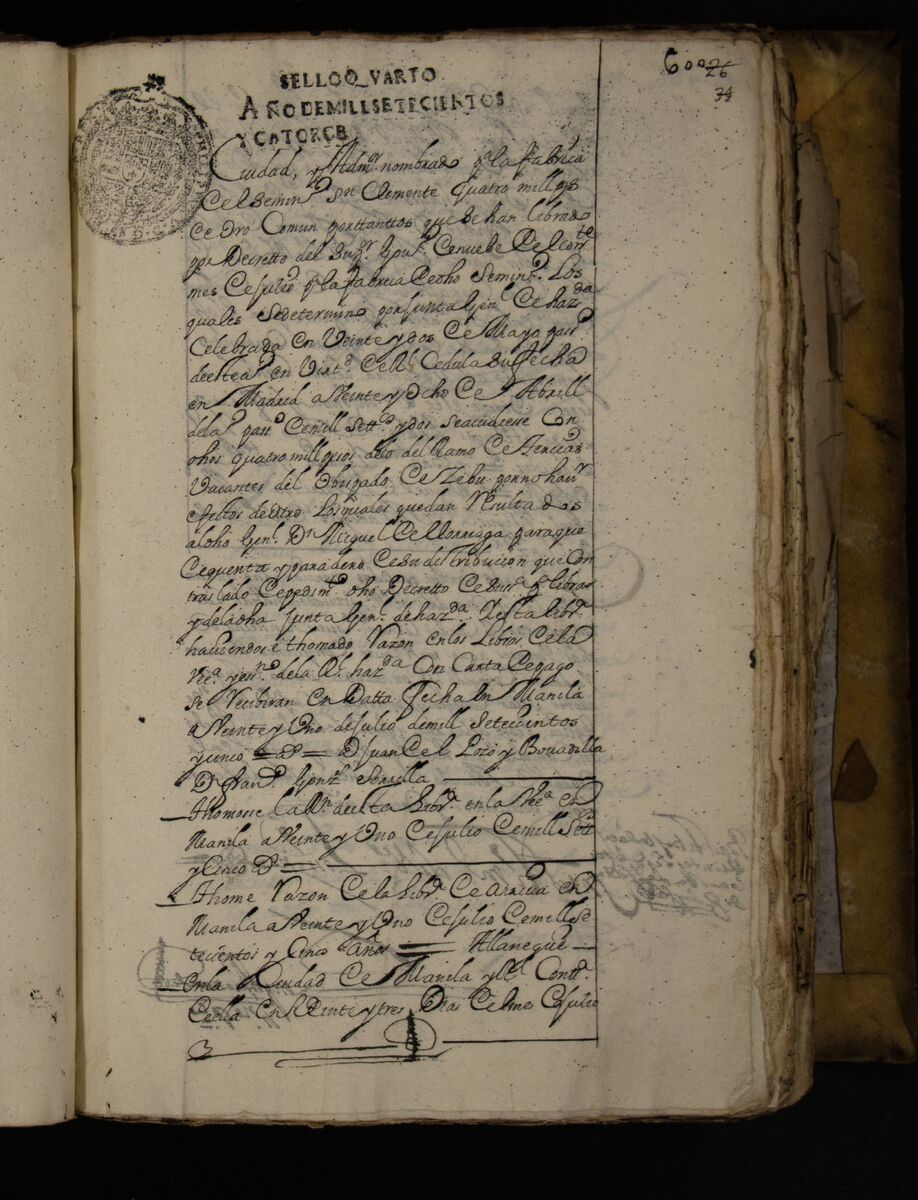 600 26
74
SELLO QVARTO
AÑO DE MILL SETECIENTOS
Y CATORCE
Ciudad, y Admor nombrado pa la fabrica
de el Seminº Sn Clemente quatro mill pos
de oro Comun por tanttos que se han librado
por Decretto del Supr Govno de nuebe del corrte
mes de Julio pa la fabrica de dho Seminº. Los
quales se determino por Junta Genl de hazda
Celebrada en Veinte y dos de Mayo passº
de este aº en Virtd de Rl Cedula su fecha
en Madrid a Veinte y Ocho de Abrill
del aº passº de mill settºs y dos se acudiese Con
dhos quatro mill pesos del Ramo de
Vacantes del Obispado de Zebu por no haver
efectos de otro Los quales quedan Resultados
al dho Genl. Dn Miguel de Elorriaga para que
de quenta y paradero de su distribucion que Con
traslado de pedimto dho Decretto de Supr pa librar
y de la dha Junta Genl. de hazda. Y esta libra
haviendose thomado Razon en los Libros de la
de la Rl hazda Con Carta de pago
se Recibiran en Datta fecha en Manila
a Veinte y Uno de Julio de mill Setecientos
y cinco = = D Juan de el Pozo y Bovadilla
D Franco Gonzz
Thomose la Rn de esta Libra en la en
Manila a Veinte y Uno de Julio de mill Settº
y Cinco =
Thome Razon de la Libra de arriva en
Manila a Veinte y Uno de Julio de mill Se
tecientos y Cinco años = Allanegue
En la Ciudad de Manila y Rl Contta
de ella en Veinte y tres Dias del mes de Julio